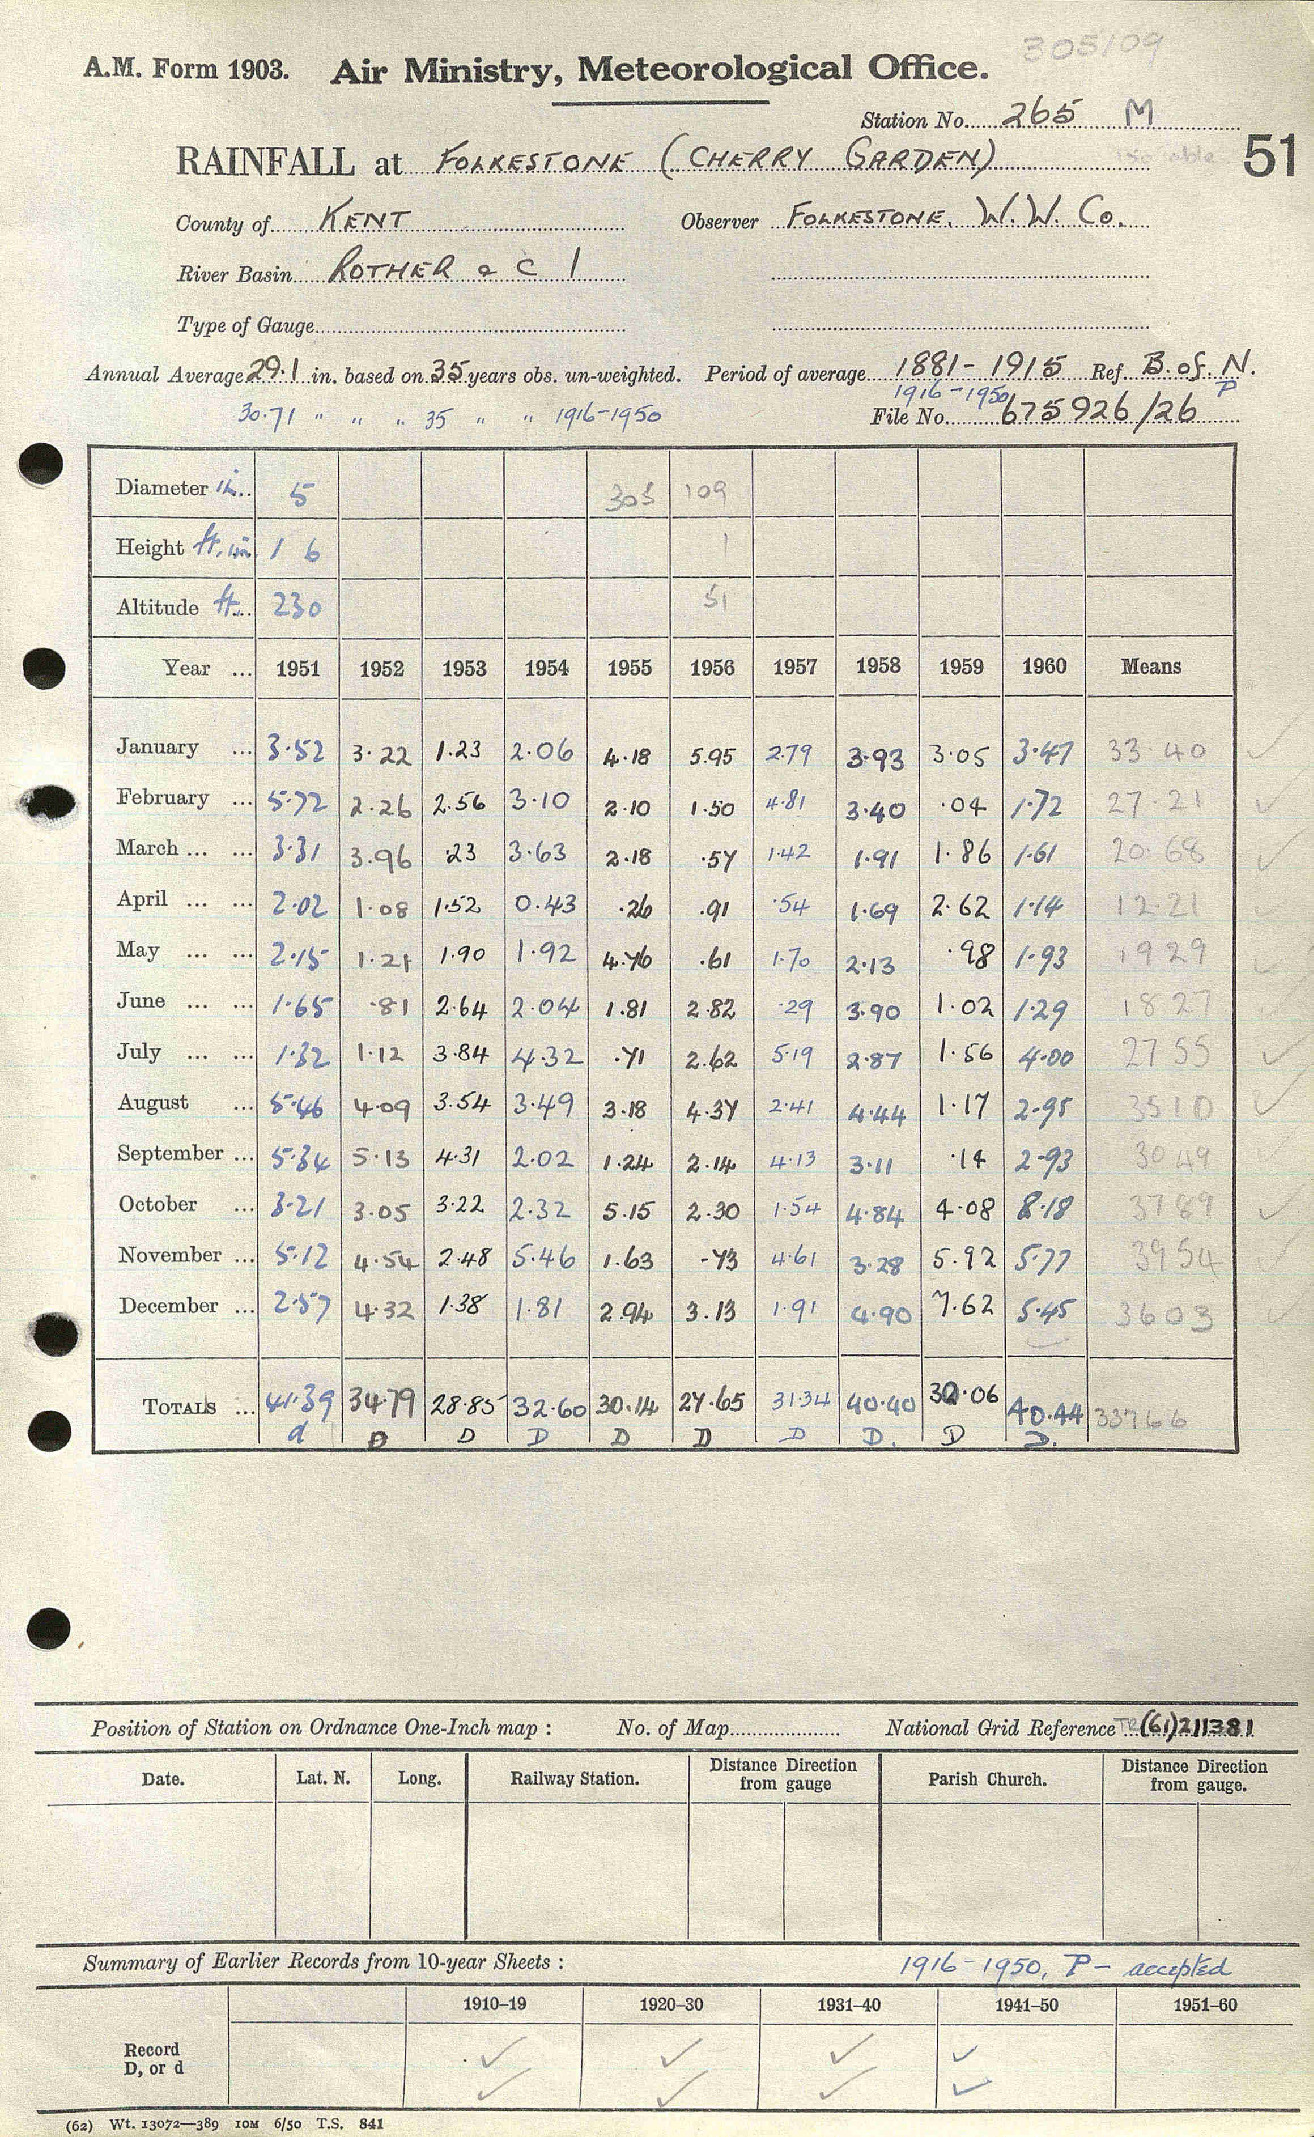 305/09
A.M. Form 1903. Air Ministry, Meteorological Office.
Station No. 265 M
RAINFALL at FOLKESTONE (CHERRY GARDEN) 51
County of KENT Observer FOLKESTONE. W.W. Co.
River Basin ROTHER & C 1
Type of Gauge
Annual Average 29.1 in. based on 35 years obs. un-weighted. Period of average 1881-1915 Ref. B. of. N.
1916-1950 P
30.71 " " " 35 " " 1916-1950 File No. 675926/26
Diameter in. 5 305 109
Height ft. in 1 6 1
Altitude ft. 230 51
Year ... 1951 1952 1953 1954 1955 1956 1957 1958 1959 1960 Means
January ... 3.52 3.22 1.23 2.06 4.18 5.95 2.79 3.93 3.05 3.47 33 40
February ... 5.72 2.26 2.56 3.10 2.10 1.50 4.81 3.40 .04 1.72 27 21
March ... ... 3.31 3.96 .23 3.63 2.18 .57 1.42 1.91 1.86 1.61 20.68
April ... ... 2.02 1.08 1.52 0.43 .26 .91 .54 1.69 2.62 1.14 12.21
May ... ... 2.15 1.21 1.90 1.92 4.76 .61 1.70 2.13 .98 1.93 19 29
June ... ... 1.65 .81 2.64 2.04 1.81 2.82 .29 3.90 1.02 1.29 18 27
July ... ... 1.32 1.12 3.84 4.32 .71 2.62 5.19 2.87 1.56 4.00 27 55
August ... 5.46 4.09 3.54 3.49 3.18 4.37 2.41 4.44 1.17 2.95 35 10
September ... 5.34 5.13 4.31 2.02 1.24 2.14 4.13 3.11 .14 2.93 30 49
October ... 3.21 3.05 3.22 2.32 5.15 2.30 1.54 4.84 4.08 8.18 37 89
November ... 5.12 4.54 2.48 5.46 1.63 .73 4.61 3.28 5.92 5.77 39 54
December ... 2.57 4.32 1.38 1.81 2.94 3.13 1.91 4.90 7.62 5.45 36 03
TOTALS ... 41.39 34.79 28.85 32.60 30.14 27.65 31.34 40.40 30.06 40.44 337 66
d D D D D D D D. D D.
Position of Station on Ordnance One-Inch map : No. of Map National Grid Reference TR (61) 211381
Date. Lat. N. Long. Railway Station. Distance from gauge Direction Parish Church. Distance from gauge. Direction
Summary of Earlier Records from 10-year Sheets : 1916-1950, P - accepted
1910-19 1920-30 1931-40 1941-50 1951-60
Record ✓ ✓ ✓ ✓
D, or d ✓ ✓ ✓ ✓
(62) Wt. 13072—389 10M 6/50 T.S. 841